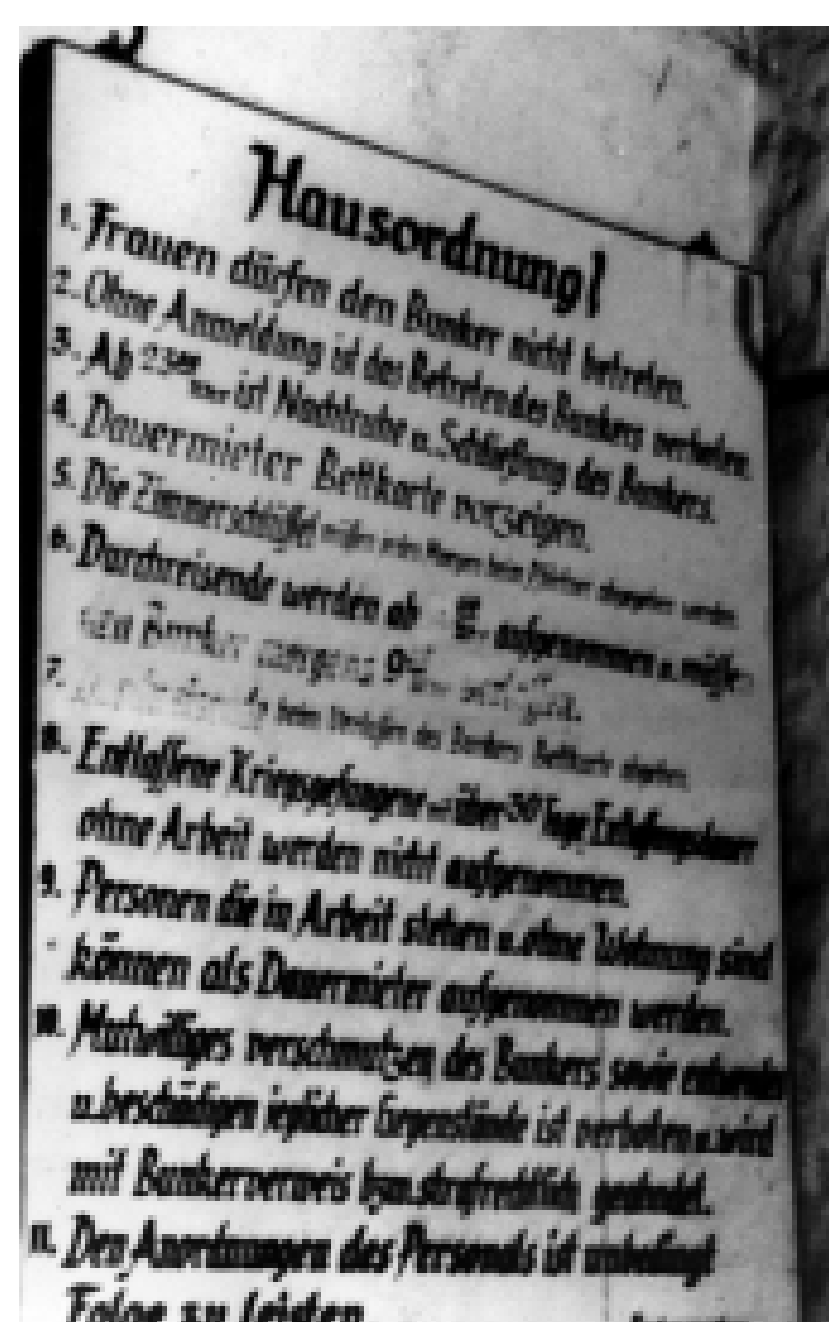 Hausordnung!
1. Frauen dürfen den Bunker nicht betreten.
2. Ohne Anmeldung ist das Betreten des Bunkers verboten.
3. Ab 23⁰⁰ Uhr ist Nachtruhe u. Schließung des Bunkers.
4. Dauermieter Bettkarte vorzeigen.
5. Die Zimmerschlüssel müßen jeden Morgen beim Pförtner abgegeben werden
6. Durchreisende werden ab aufgenommen u. müßen
den Bunker morgens 9
7. beim Verlaßen des Bunkers Bettkarte abgeben.
8. Entlaßene Kriegsgefangene über 30 Tage Entlaßungsdauer
ohne Arbeit werden nicht aufgenommen.
9. Personen die in Arbeit stehen u. ohne Wohnung sind
können als Dauermieter aufgenommen werden.
10. Mutwilliges verschmutzen des Bunkers sowie entwenden
u. beschädigen jeglicher Gegenstände ist verboten u. wird
mit Bunkerverweis bzw. strafrechtlich geahndet.
11. Den Anordnungen des Personals ist unbedingt
Folge zu leisten